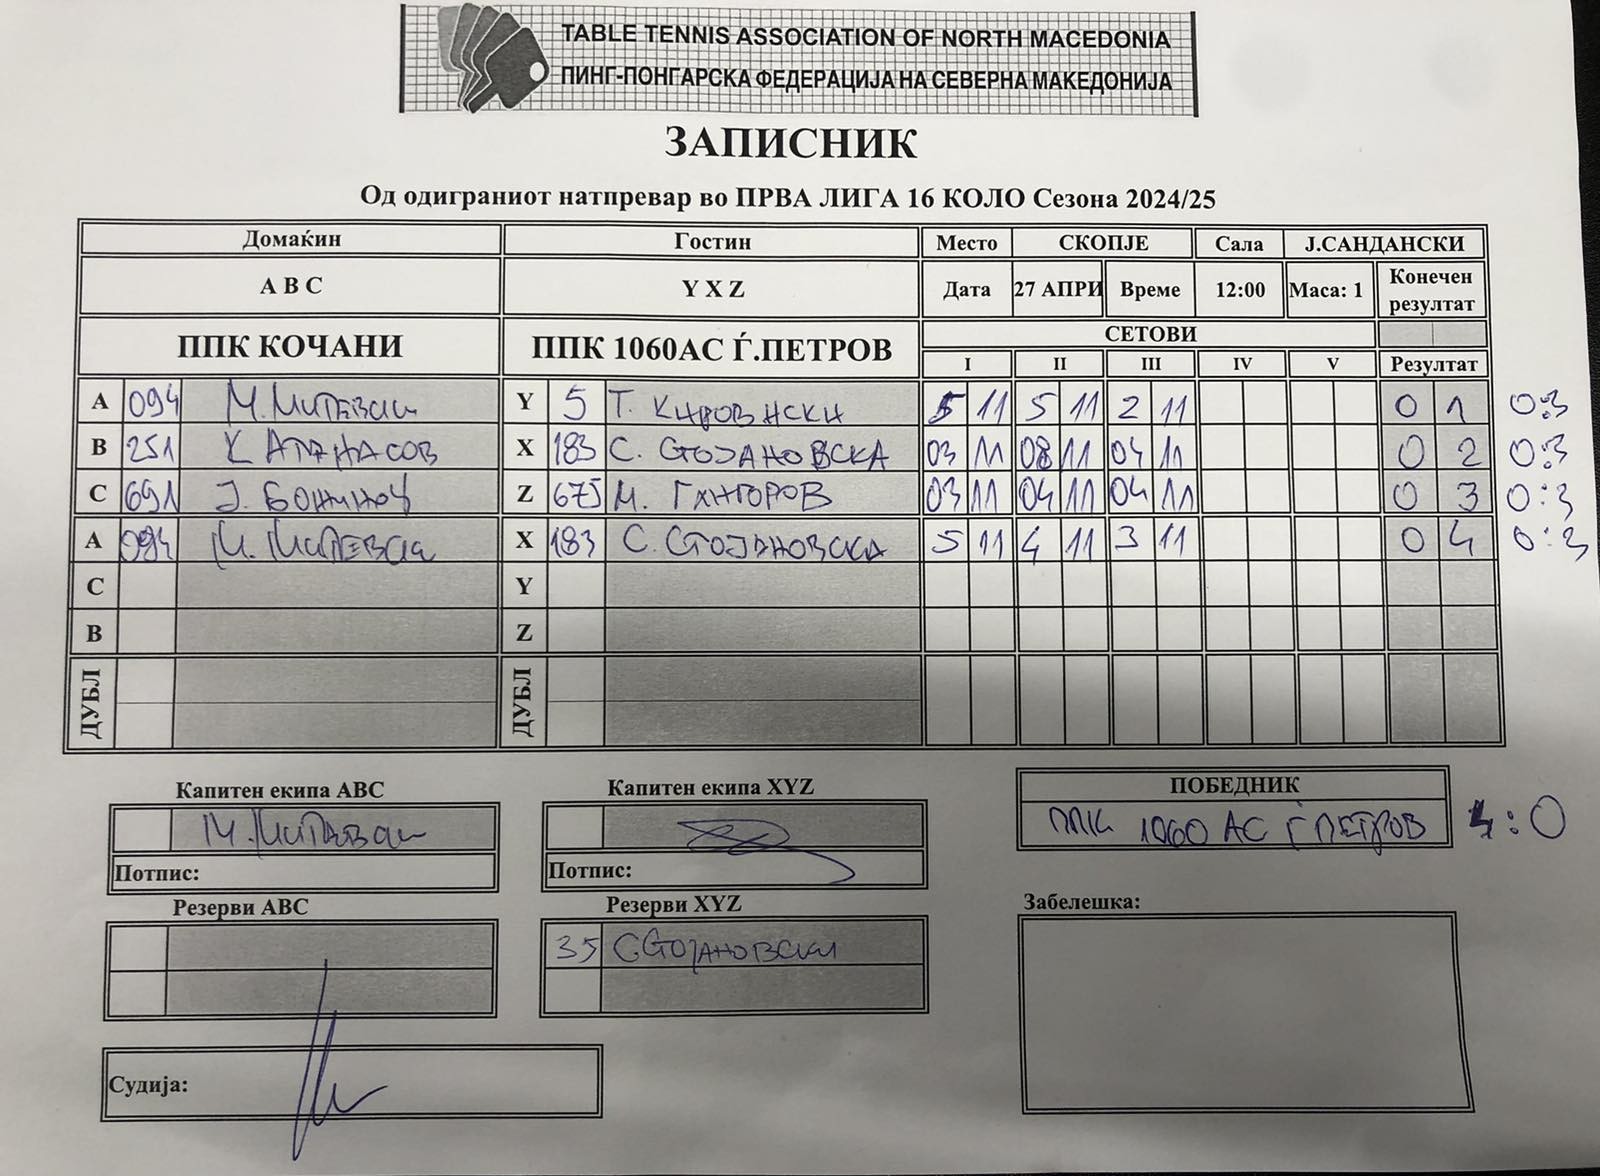 TABLE TENNIS ASSOCIATION OF NORTH MACEDONIA
ПИНГ-ПОНГАРСКА ФЕДЕРАЦИЈА НА СЕВЕРНА МАКЕДОНИЈА
ЗАПИСНИК
Од одиграниот натпревар во ПРВА ЛИГА 16 КОЛО Сезона 2024/25
Домаќин Гостин Место СКОПЈЕ Сала Ј.САНДАНСКИ
A B C Y X Z Дата 27 АПРИ Време 12:00 Маса: 1 Конечен резултат
ППК КОЧАНИ ППК 1060АС Ѓ.ПЕТРОВ СЕТОВИ
I II III IV V Резултат
A 094 М. Y 5 Т. 5 11 5 11 2 11 0 1 0:3
B 251 К АТАНАСОВ X 183 С. СТОЈАНОВСКА 03 11 08 11 04 11 0 2 0:3
C 691 Ј. Z 675 М. 03 11 04 11 04 11 0 3 0:3
A 094 М. X 183 С. СТОЈАНОВСКА 5 11 4 11 3 11 0 4 0:3
C Y
B Z
ДУБЛ ДУБЛ
Капитен екипа ABC Капитен екипа XYZ ПОБЕДНИК
М. ППК 1060 АС Ѓ ПЕТРОВ 4:0
Потпис: Потпис:
Резерви ABC Резерви XYZ Забелешка:
35 С СТОЈАНОВСКИ
Судија: